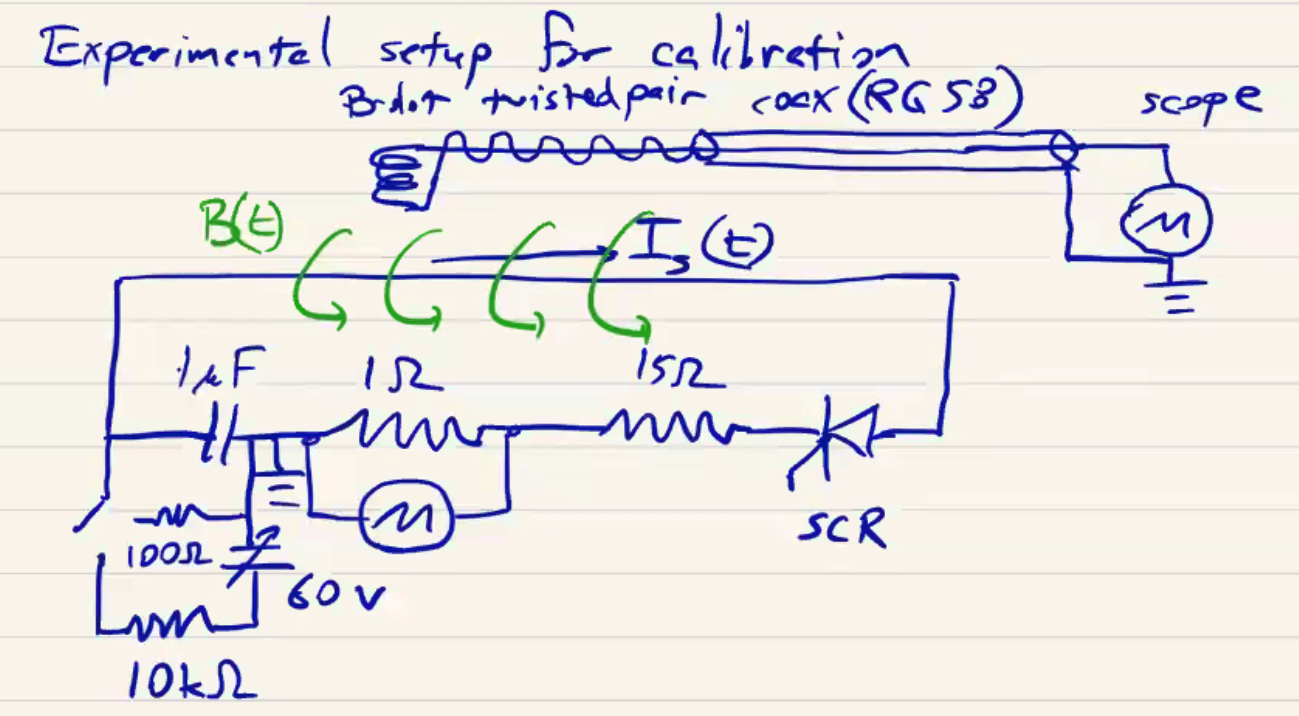 Experimental setup for calibration
B-dot twisted pair coax (RG 58) scope
B(t) I_s(t)
1μF 1Ω 15Ω
SCR
100Ω
60 V
10kΩ